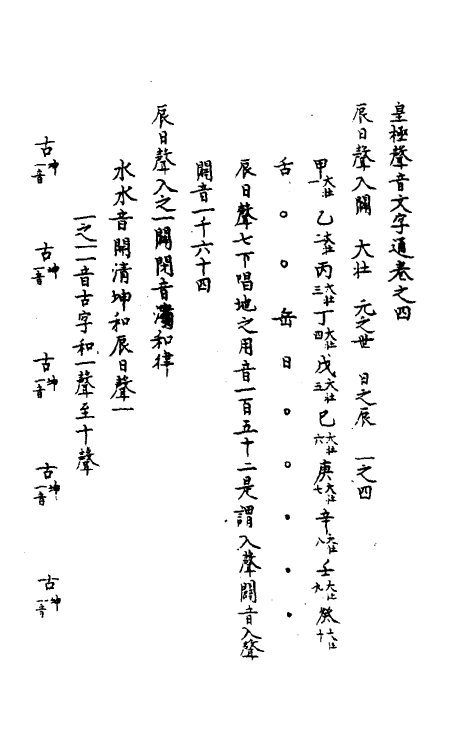 皇極聲音文字通卷之四
辰日聲入闢　大壯　元之世　日之辰　一之四
甲大壯一乙大壯二丙大壯三丁大壯四戊大壯五己大壯六庚大壯七辛大壯八壬大壯九癸大壯十
舌○○岳日○○●●●
辰日聲七下唱地之用音一百五十二是謂入聲闢音入聲
闢音一千六十四
辰日聲入之一闢開音清和律
水水音開清坤和辰日聲一
一之一一音古字和一聲至十聲
古坤一音　古坤一音　古坤一音　古坤一音　古坤一音